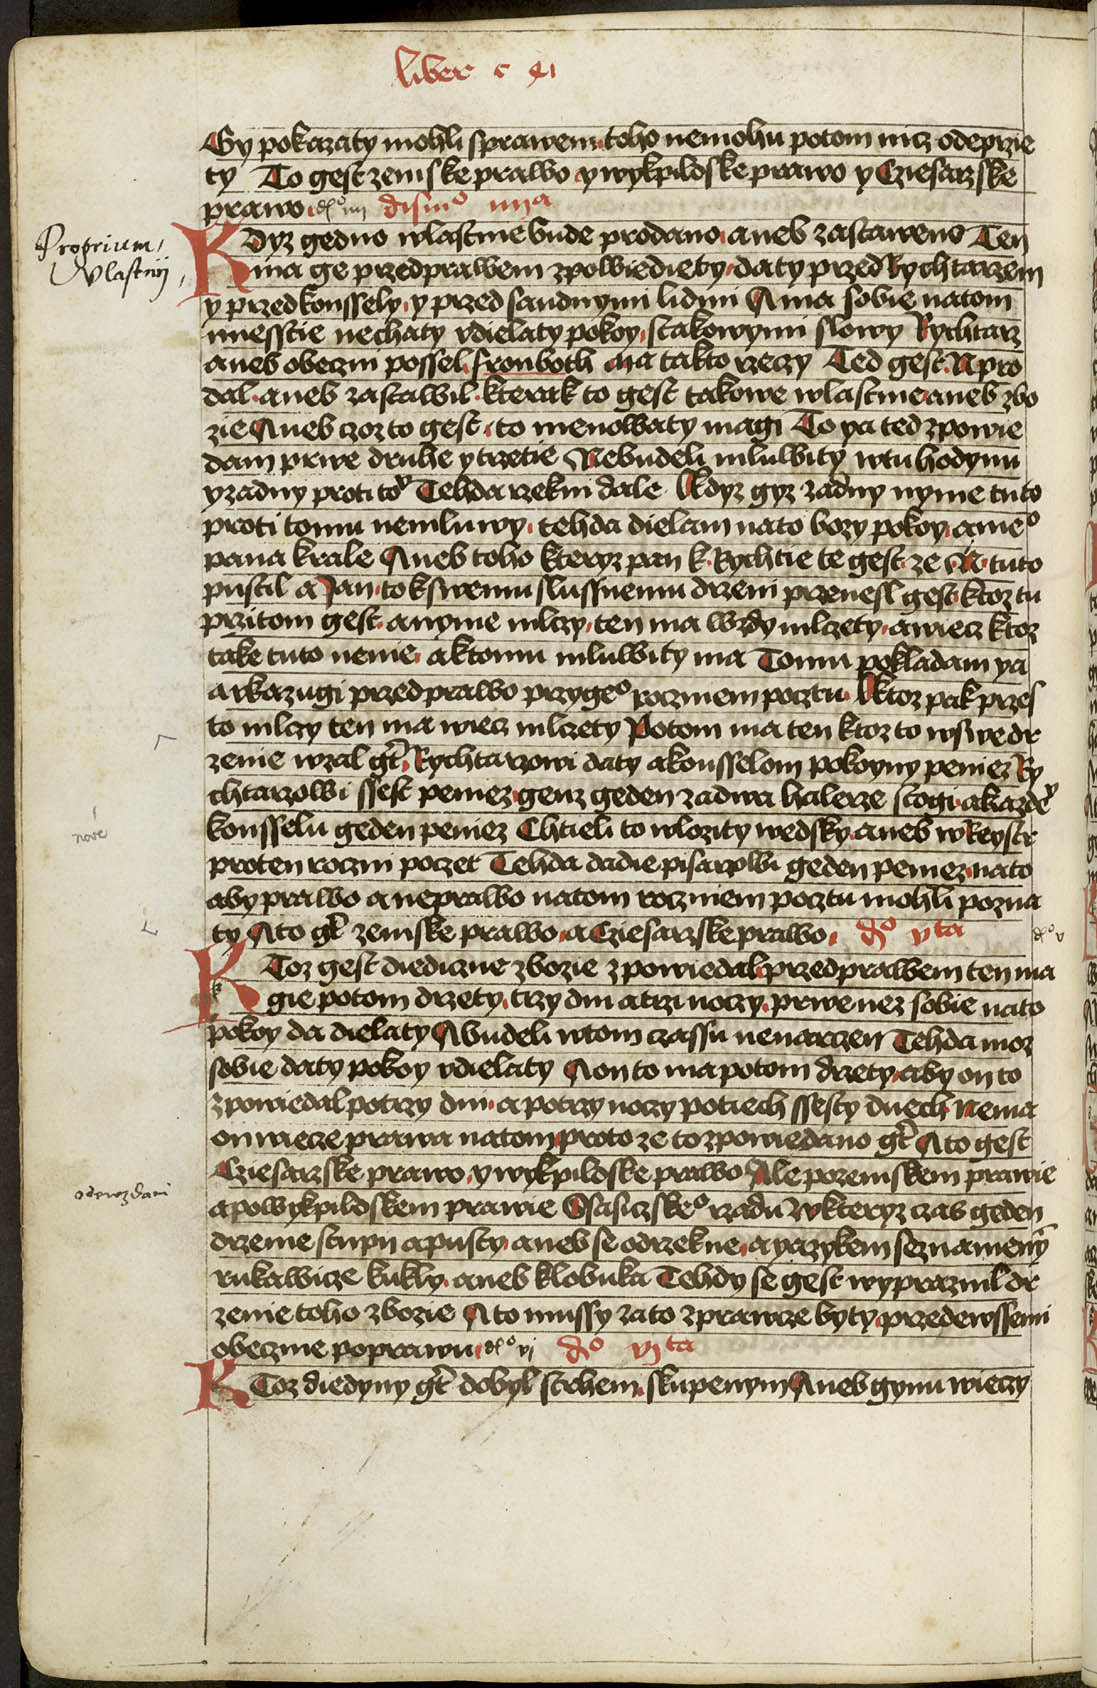 liber c q
By pokazaty mohli sprawem toho nemohu potom nicz odeprzie
ty To gest zemske prawo y wykpildske prawo y Cziesarzske
prawo d° iiii disni° iiiia
Proprium
Vlastnij
KDyz gedno wlastnie bude prodano aneb zastaweno Ten
ma ge przed prawem zpowiediety daty przed Rychtarzem
y przed konssely y przed saudnymi lidmi A ma sobie natom
miesstie nechaty vdielaty pokoy stakowymi slowy Rychtarz
aneb obeczni possel fronboth ma takto rzeczy Ted gest N pro
dal aneb zastawil kterak to gest takowe wlastnie aneb zbo
zie Aneb czoz to gest to menowaty magi To ya ted zpowie
dam prwe druhe y trzetie Nebudeli mluwity wtu hodynu
y zadny proti to° Tehda rzekni dale Kdyz gyz zadny nynie tuto
proti tomu nemluwy tehda dielam nato bozy pokoy a me°
pana krale Aneb toho kteryz pan k Rychtie te gest ze N tuto
pustil a Jan to kswemu slussnemu drzeni przenesl gest ktoz tu
przitom gest a nynie mlczy ten ma wzdy mlczety a wiecz ktoz
take tuto nenie a ktomu mluwity ma Tomu pokladam ya
a vkazugi przed prawo przyge° rocznem pocztu Ktoz pak przes
to mlczy ten ma wiecz mlczety Potom ma ten ktoz to wswe dr
zenie wzal gt Rychtarzowi daty a konsselom pokoyny peniez Ry
chtarzowi ssest peniez genz geden za dwa halerze stogi a kazde°
nové
konsselu geden peniez Chtieli to wlozity wedsky aneb w Reystr
pro ten roczni poczet Tehda dadie pisarzowi geden peniez nato
aby prawo a neprawo natom rocznem pocztu mohli pozna
ty A to gt zemske prawo a Cziesarzske prawo d° vta
d° v
KToz gest diediczne zbozie zpowiedal przed prawem ten ma
gie potom drzety trzy dni a trzi noczy prwe nez sobie nato
pokoy da dielaty A budeli wtom czassu nenarczen Tehda moz
sobie daty pokoy vdielaty A on to ma potom drzety aby on to
zpowiedal potrzy dni a potrzy noczy potiech ssesty dnech Nema
on wiecze prawa natom proto ze to zpowiedano gt A to gest
Cziesarzske prawo y wykpildske prawo Ale po zemskem prawie
a po wykpildskem prawie Osasiczske° rzadu W kteryz czas geden
drzenie stupu a pusty aneb se odrzekne a yazykem seznameny
rukawicze kukly aneb klobuka Tehdy se gest wypraznil dr
zenie toho zbozie A to mussy zato zprawcze byty przedewssemi
obecznie poprawu d° vj d° vjta
KToz diedyny gt dobyl strhem skupenym Aneb gynu wieczy